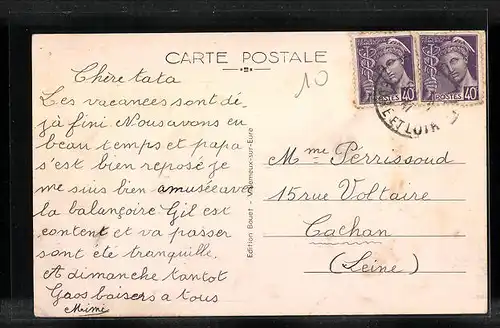 CARTE POSTALE
10
Chère tata
Les vacances sont dé-
jà fini. Nous avons eu
beau temps et papa
s'est bien reposé je
me suis bien amusée avec
la balançoire Gil est
content et va passer
sont été tranquille.
A dimanche tantot
Gaos baisers a tous
Mimi
Edition Bouet - Vernouillet-sur-Eure
POSTES 40
POSTES 40
E ET LOIR
Mme Perrissoud
15 rue Voltaire
Cachan
(Seine)